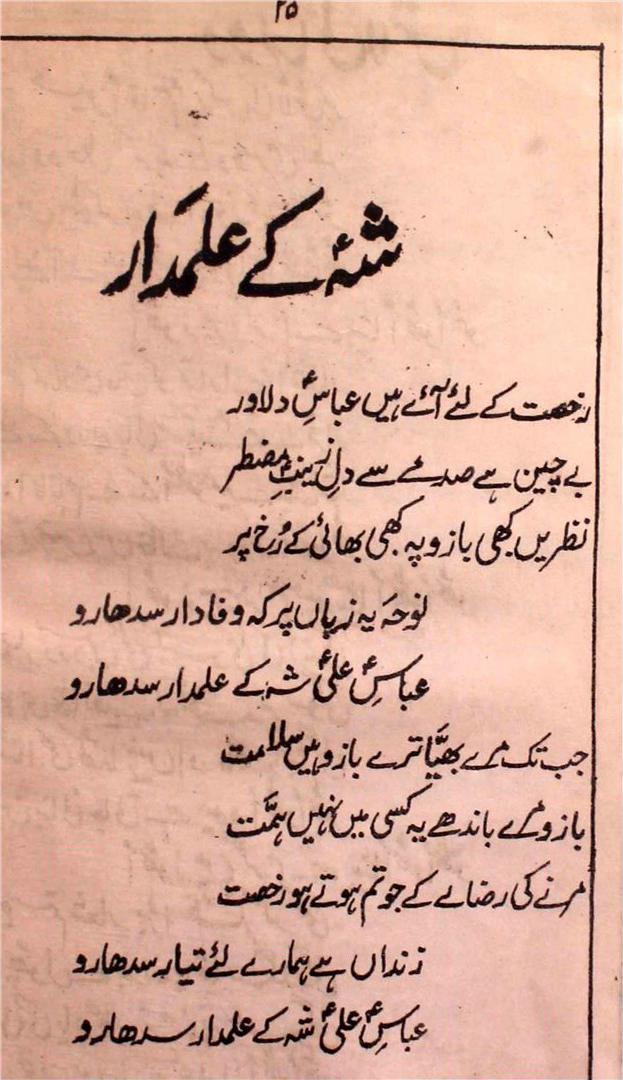 ۲۵
شہؑ کے علمدار
رخصت کے لئے آئے ہیں عباسؑ دلاور
بے چین ہے صدمے سے دلِ زینبِؑ مضطر
نظریں کبھی بازو پہ کبھی بھائی کے رُخ پر
نوحہ یہ زباں پر کہ وفادار سدھارو
عباسِؑ علیؑ شہ کے علمدار سدھارو
جب تک مرے بھیّا ترے بازو ہیں سلامت
بازو مرے باندھے یہ کسی میں نہیں ہمّت
مرنے کی رضا لے کے جو تم ہوتے ہو رخصت
زنداں ہے ہمارے لئے تیار سدھارو
عباسِؑ علیؑ شہ کے علمدار سدھارو